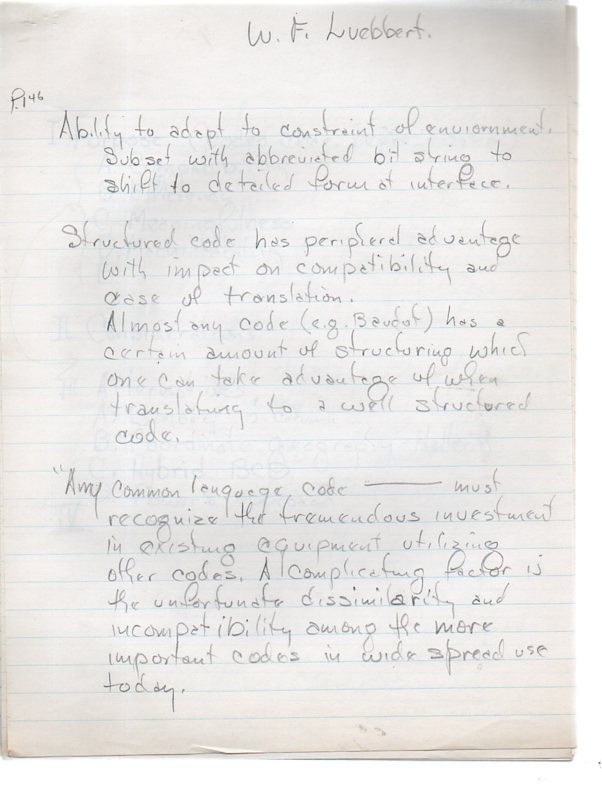 W. F. Luebbert.
P.146
Ability to adapt to constraint of enviornment.
Subset with abbreviated bit string to
shift to detailed form at interface.
Structured code has peripheral advantage
with impact on compatibility and
ease of translation.
Almost any code (e.g. Baudot) has a
certain amount of structuring which
one can take advantage of when
translating to a well structured
code.
"Any common language code ——— must
recognize the tremendous investment
in existing equipment utilizing
other codes. A complicating factor is
the unfortunate dissimilarity and
incompatibility among the more
important codes in wide spread use
today.